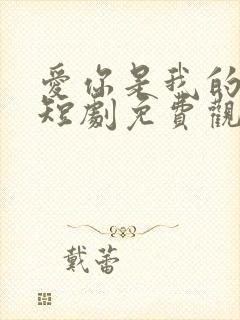 愛你是我的
短劇免費觀
戴蕾